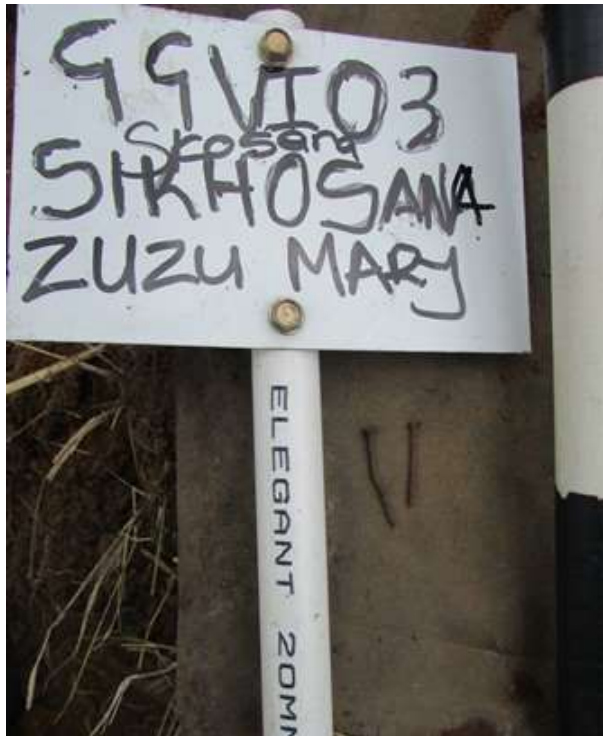 GGVI03
Skosana
SIKHOSANA
ZUZU MARY
ELEGANT 20MM